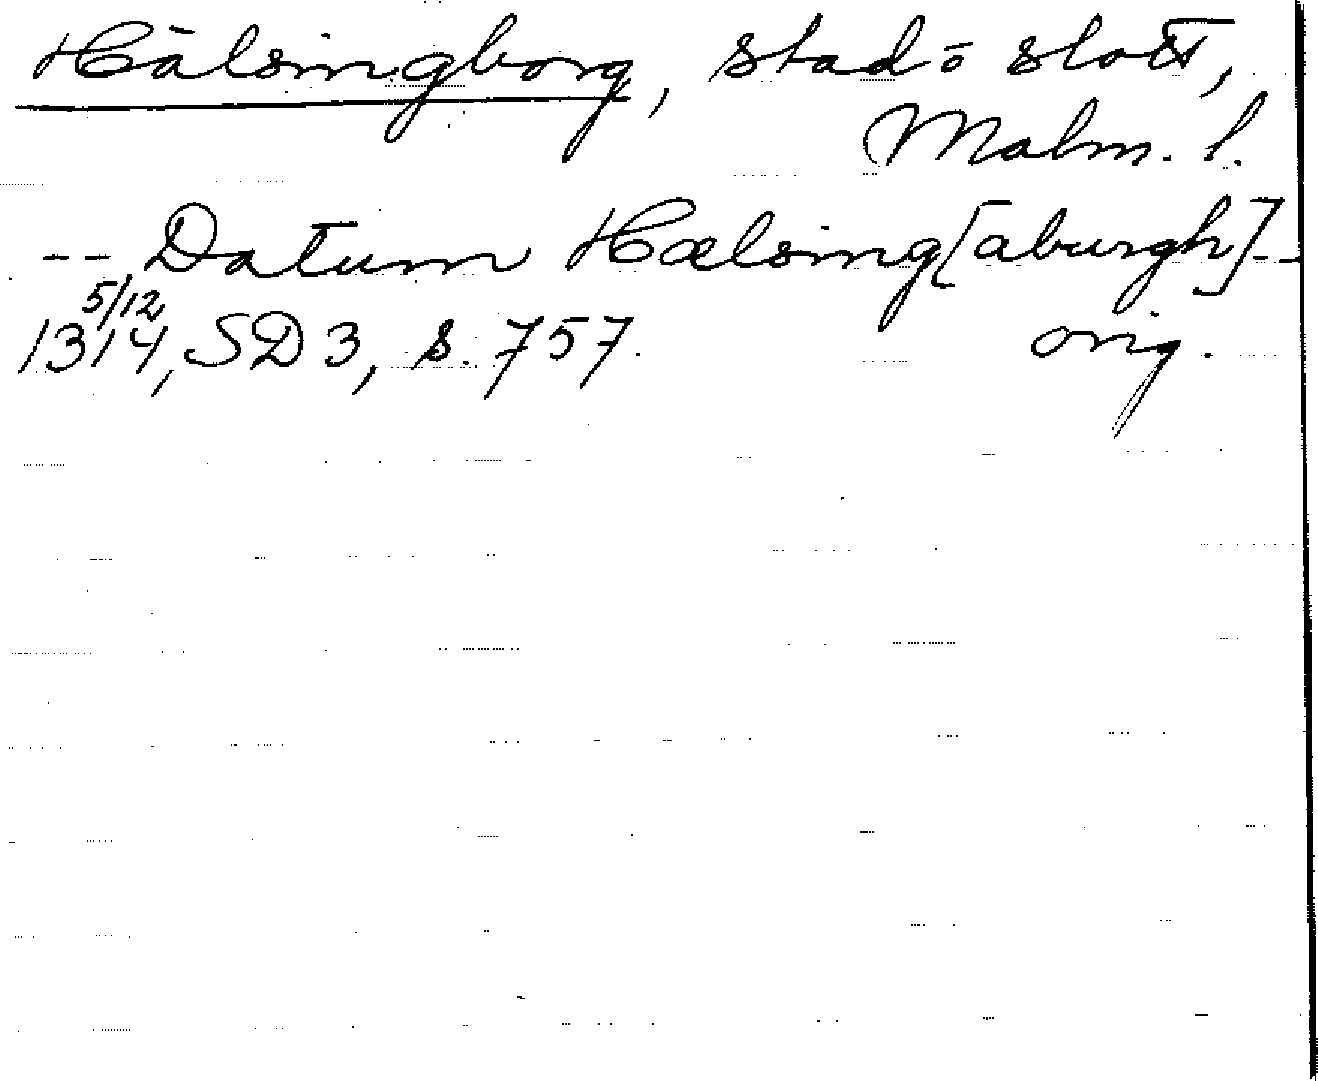 Hälsingborg, stad o slott,
Malm. l.
-- Datum Hælsing[aburgh] --
5/12
1314, SD 3, s. 757. orig.